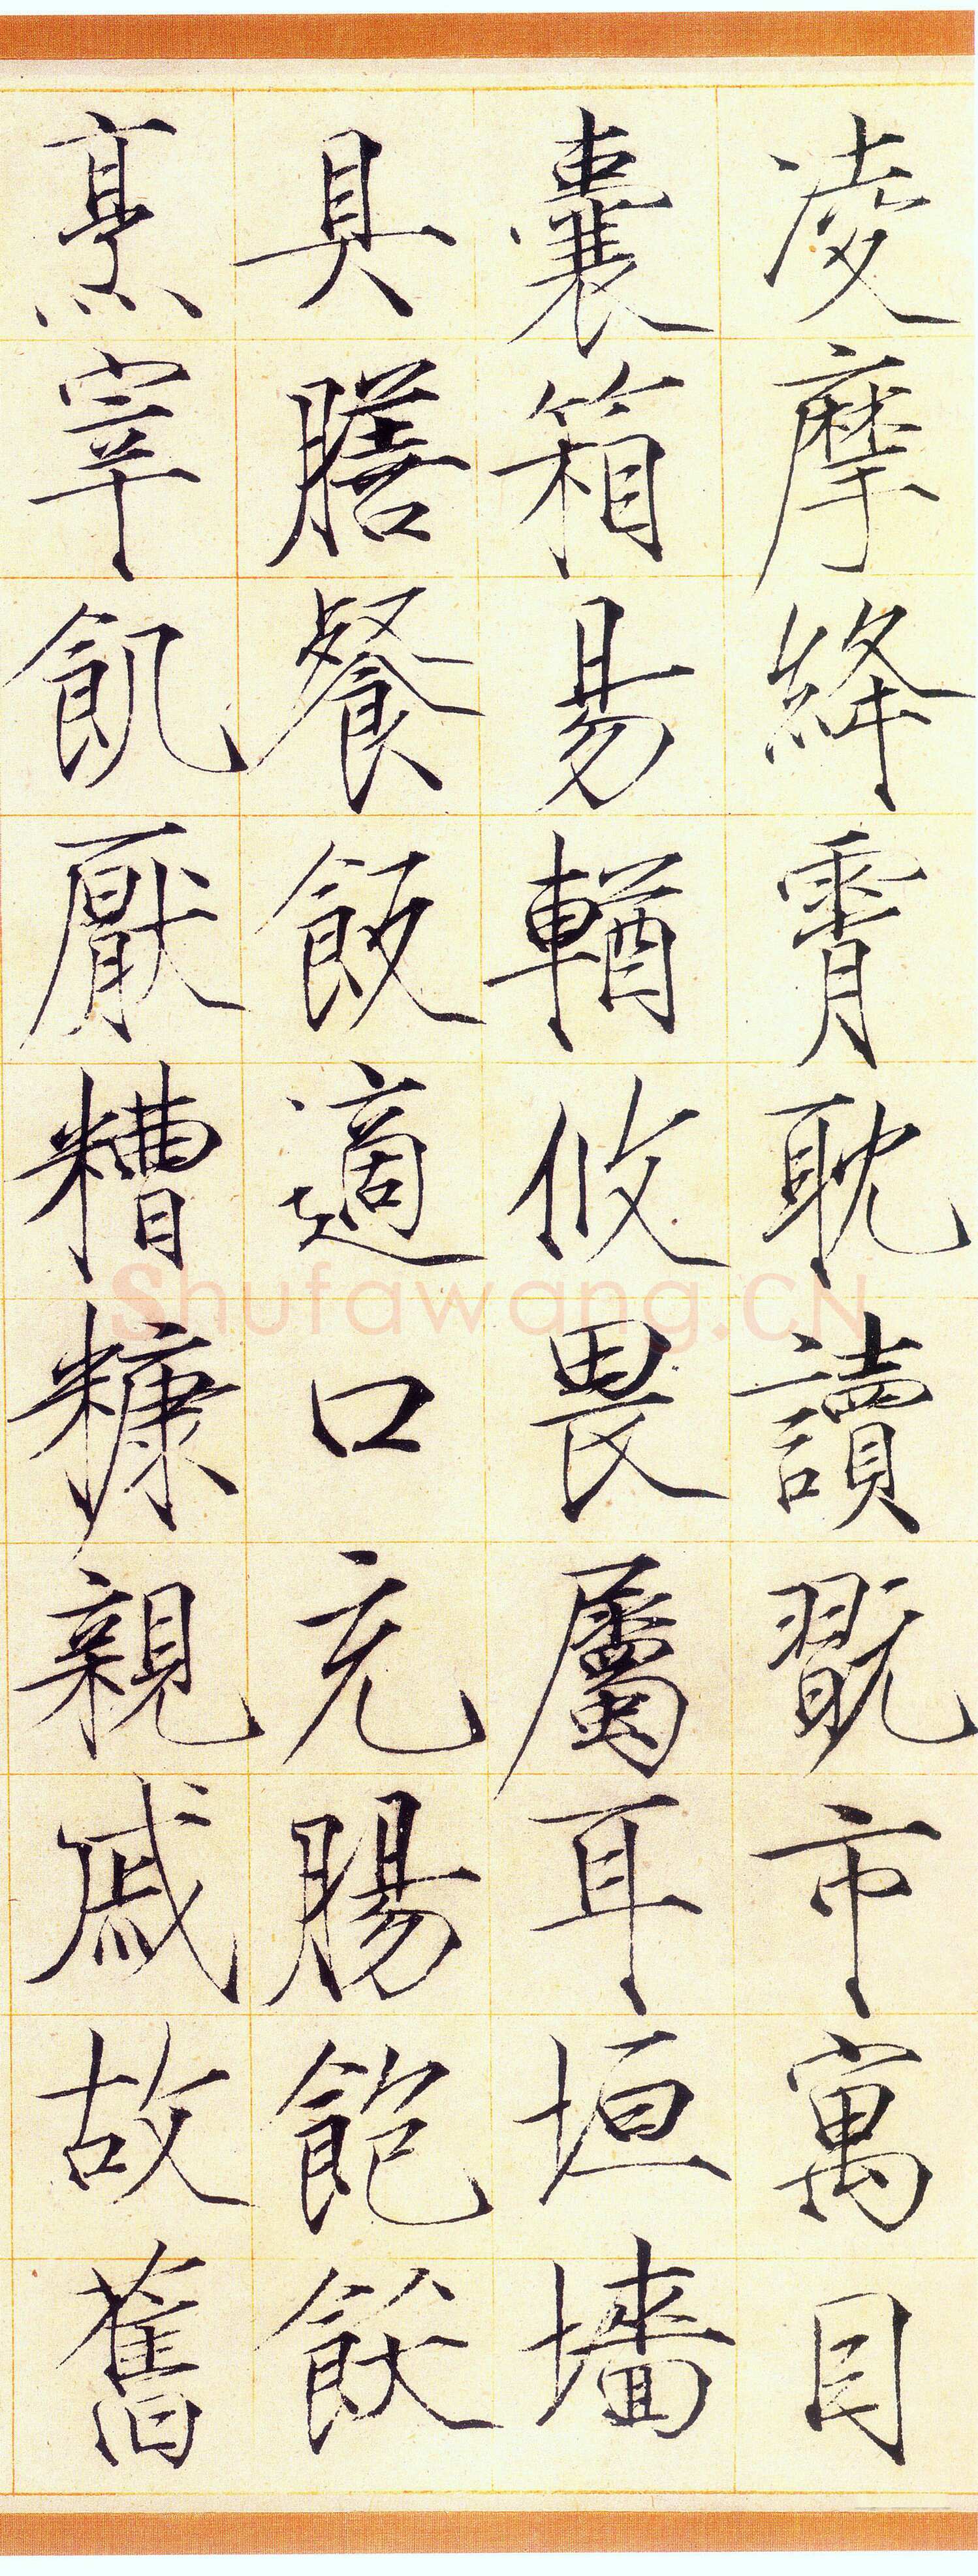 凌摩絳霄耽讀翫市寓目
囊箱易輶攸畏屬耳垣墻
具膳餐飯適口充腸飽飫
烹宰飢厭糟糠親戚故舊
Shufawang.CN